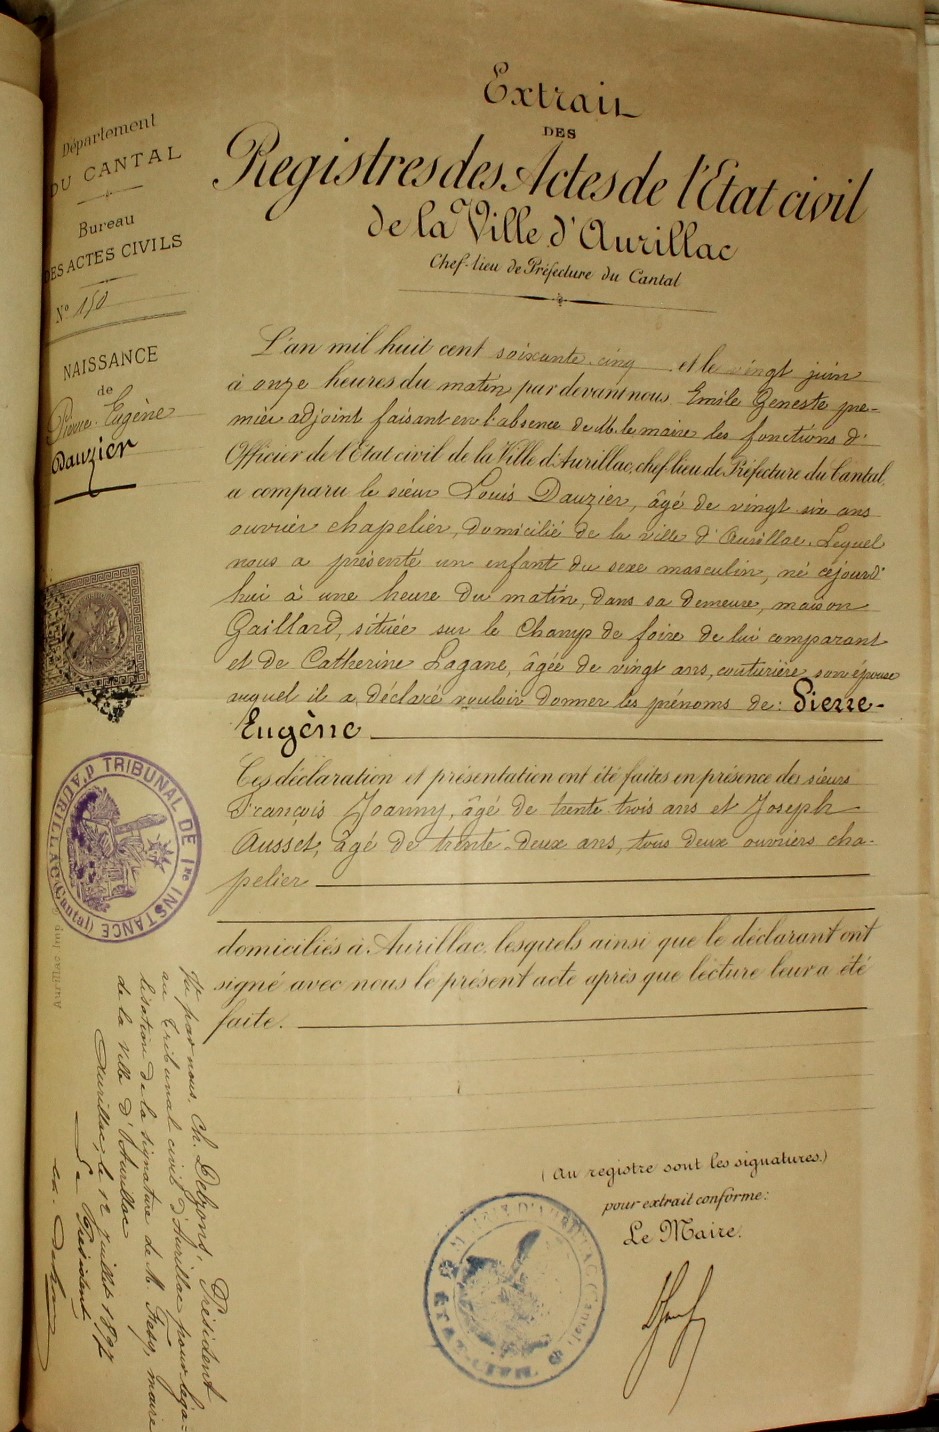 Extrait
DES
Registres des Actes de l'Etat civil
de la Ville d'Aurillac
Chef-lieu de Préfecture du Cantal
Département
DU CANTAL
Bureau
DES ACTES CIVILS
N° 150
NAISSANCE
de
Pierre-Eugène
Dauzier
L'an mil huit cent soixante-cinq et le vingt juin
à onze heures du matin par devant nous Emile Geneste pre-
mier adjoint faisant en l'absence de M. le maire les fonctions d'
Officier de l'Etat civil de la Ville d'Aurillac, chef-lieu de Préfecture du Cantal,
a comparu le sieur Louis Dauzier, âgé de vingt six ans
ouvrier chapelier, domicilié de la ville d'Aurillac. Lequel
nous a présenté un enfant du sexe masculin, né cejourd'
hui à une heure du matin, dans sa demeure, maison
Gaillard, située sur le Champ de foire de lui comparant
et de Catherine Lagane, âgée de vingt ans, couturière son épouse
auquel il a déclaré vouloir donner les prénoms de: Pierre-
Eugène
Ces déclaration et présentation ont été faites en présence des sieurs
François Joanny, âgé de trente-trois ans et Joseph
Ausset, âgé de trente-deux ans, tous deux ouvriers cha-
pelier
domiciliés à Aurillac, lesquels ainsi que le déclarant ont
signé avec nous le présent acte après que lecture leur a été
faite.
(Au registre sont les signatures.)
pour extrait conforme:
Le Maire.
TRIBUNAL DE 1re INSTANCE
D'AURILLAC (Cantal)
MAIRIE D'AURILLAC (Cantal)
Vu par nous, Ch. Delzons, Président
au Tribunal civil d'Aurillac pour léga-
lisation de la signature de M. Fesq, maire
de la ville d'Aurillac
Aurillac, le 12 juillet 1897
Le Président